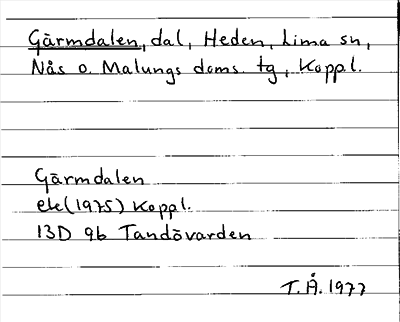 Gärmdalen, dal, Heden, Lima sn,
Nås o. Malungs doms. tg, Koppl.
Gärmdalen
ek(1975) Koppl.
13D 9b Tandövarden
T.Å. 1977